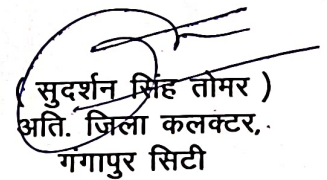 ( सुदर्शन सिंह तोमर )
अति. जिला कलक्टर,.
गंगापुर सिटी